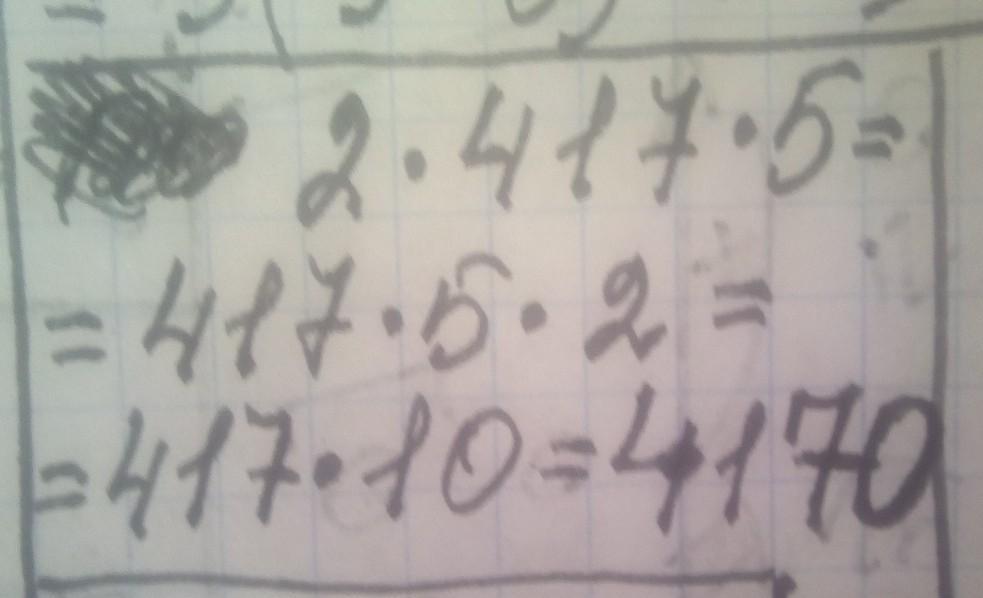 2·417·5=
=417·5·2=
=417·10=4170